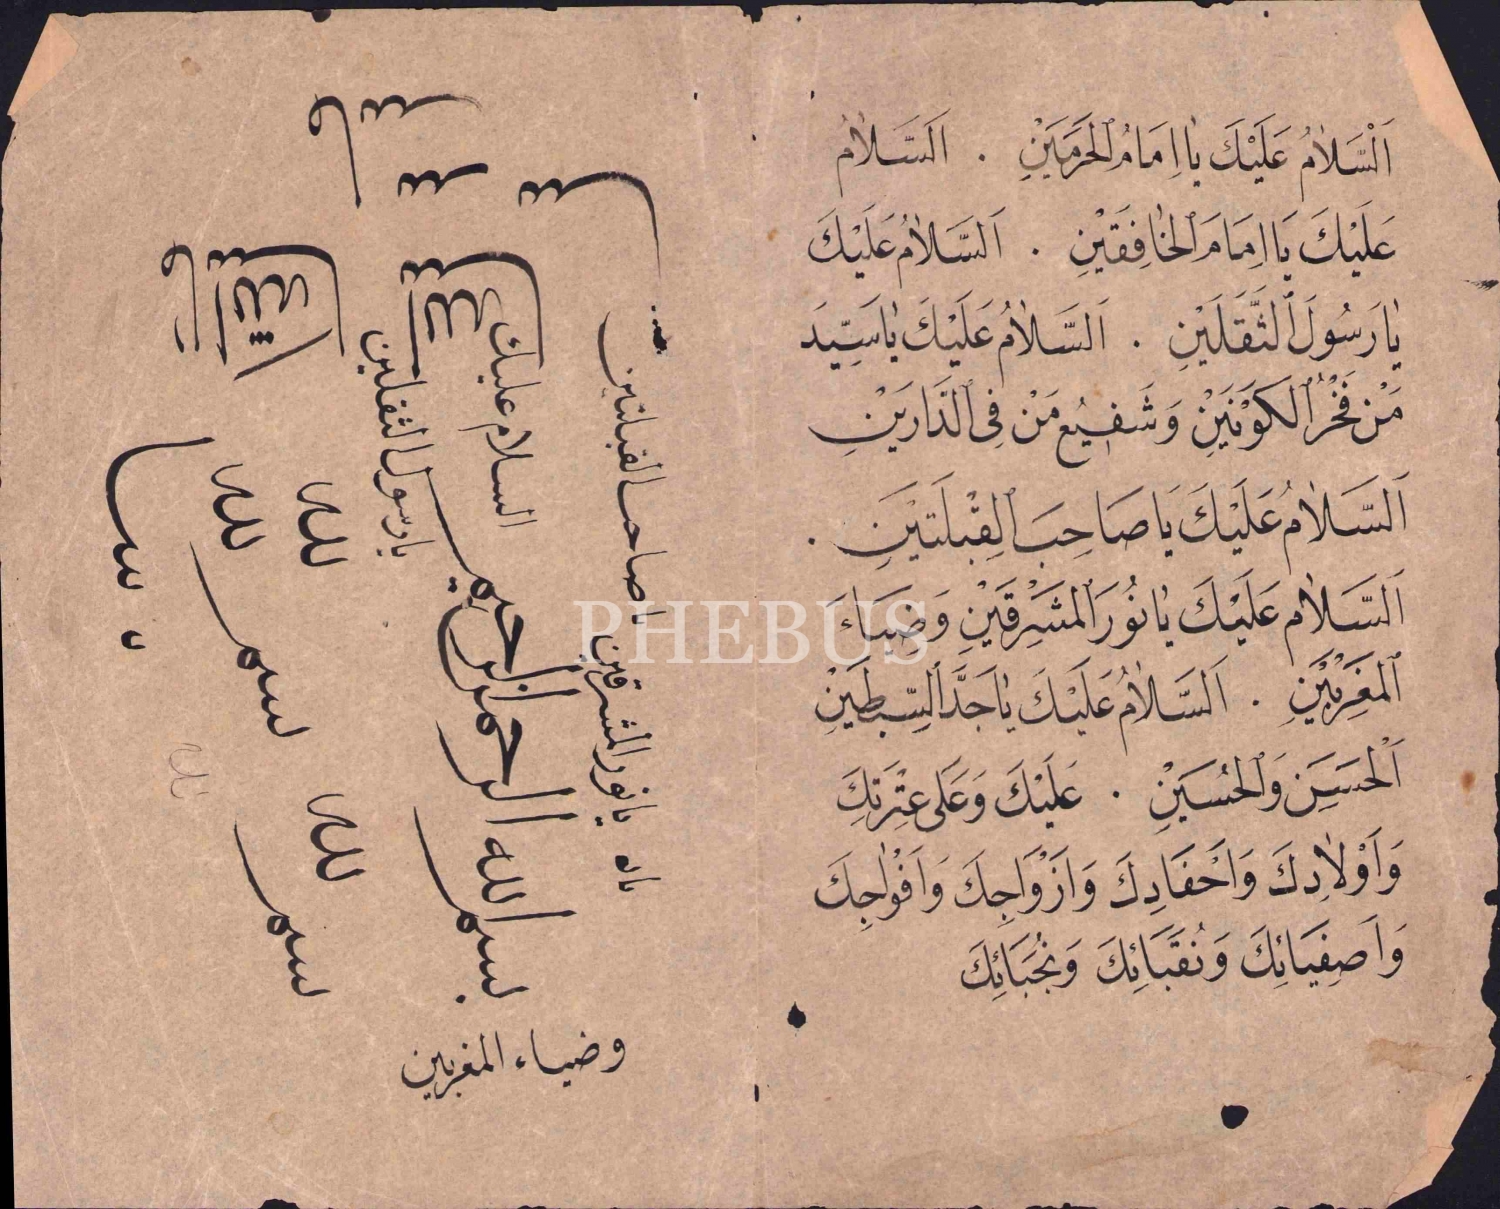 اَلْسَّلَامُ عَلَيْكَ يَا اِمَامُ الْحَرَمَيْنِ . اَلسَّلَامُ
عَلَيْكَ يَا اِمَامَ الْخَافِقَيْنِ . اَلسَّلَامُ عَلَيْكَ
يَا رَسُولَ الثَّقَلَيْنِ . اَلسَّلَامُ عَلَيْكَ يَا سَيِّدَ
مَنْ فَخْرُ الْكَوْنَيْنِ وَشَفِيعُ مَنْ فِى الدَّارَيْنِ
اَلسَّلَامُ عَلَيْكَ يَا صَاحِبَ الْقِبْلَتَيْنِ .
اَلسَّلَامُ عَلَيْكَ يَا نُورَ الْمَشْرِقَيْنِ وَضِيَاءَ
الْمَغْرِبَيْنِ . اَلسَّلَامُ عَلَيْكَ يَا جَدَّ السِّبْطَيْنِ
اَلْحَسَنِ وَالْحُسَيْنِ . عَلَيْكَ وَعَلَى عِتْرَتِكَ
وَاَوْلَادِكَ وَاَحْفَادِكَ وَاَزْوَاجِكَ وَاَفْوَاجِكَ
وَاَصْفِيَائِكَ وَنُقَبَائِكَ وَنُجَبَائِكَ
يا صاحب القبلتين
يا نور المشرقين
السلام عليك
يا رسول الثقلين
بسم الله الرحمن الرحيم
وضياء المغربين
PHEBUS